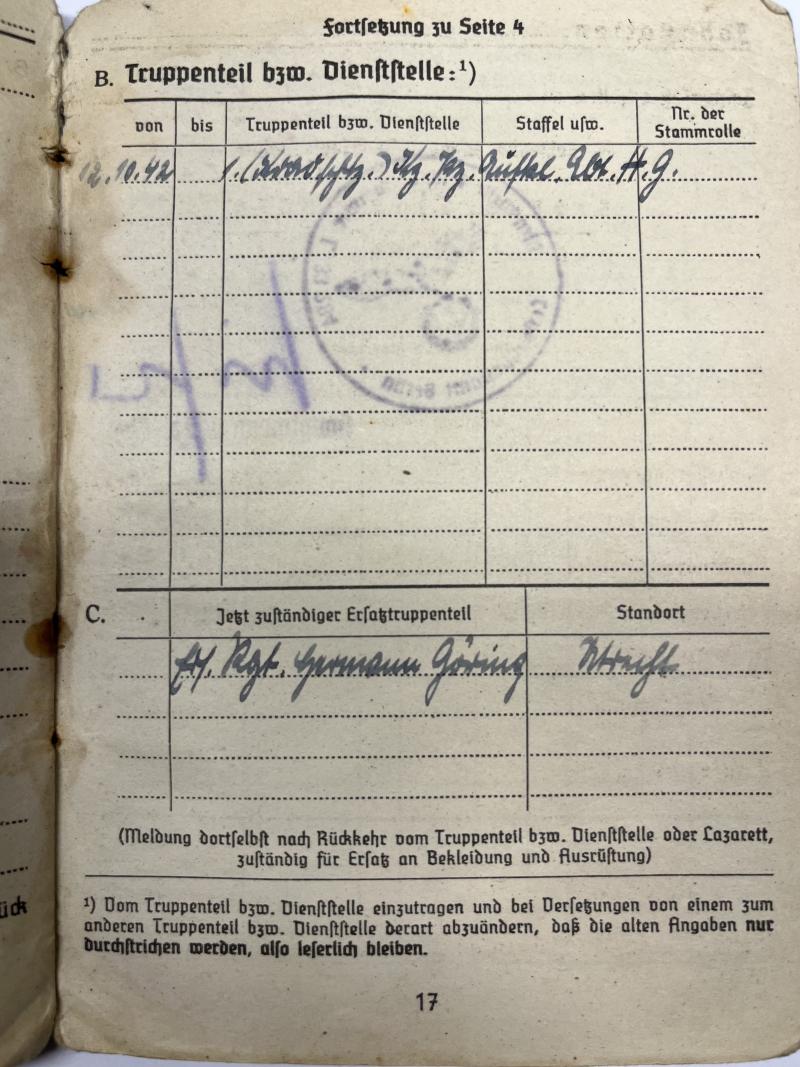 Fortsetzung zu Seite 4
B. Truppenteil bzw. Dienststelle:¹)
von bis Truppenteil bzw. Dienststelle Staffel usw. Nr. der Stammrolle
12.10.42 1. (Kradschtz.) Aufkl. Abt. H.G.
C. Jetzt zuständiger Ersatztruppenteil Standort
Ers. Rgt. Hermann Göring Utrecht
(Meldung dortselbst nach Rückkehr vom Truppenteil bzw. Dienststelle oder Lazarett,
zuständig für Ersatz an Bekleidung und Ausrüstung)
¹) Vom Truppenteil bzw. Dienststelle einzutragen und bei Versetzungen von einem zum
anderen Truppenteil bzw. Dienststelle derart abzuändern, daß die alten Angaben nur
durchstrichen werden, also leserlich bleiben.
17